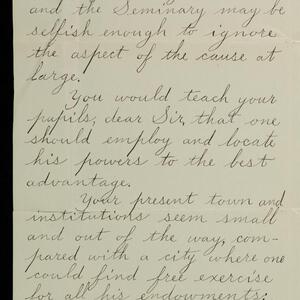 and the Seminary may be
selfish enough to ignore
the aspect of the cause at
large.
You would teach your
pupils, dear Sir, that one
should employ and locate
his powers to the best
advantage.
Your present town and
institutions seem small
and out of the way, com-
pared with a city where one
could find free exercise
for all his endowments;